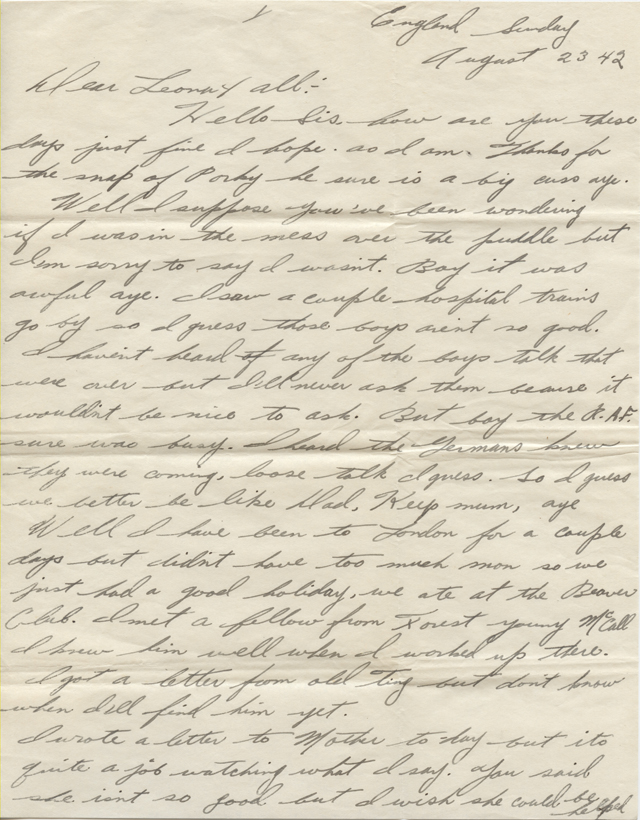 England Sunday
August 23 42
Dear Leona & all:-
Hello Sis, how are you these
days just fine I hope. as I am. Thanks for
the snap of Porky he sure is a big cuss aye.
Well I suppose you've been wondering
if I was in the mess over the puddle but
I'm sorry to say I wasn't. Boy it was
awful aye. I saw a couple hospital trains
go by so I guess those boys aren't so good.
I haven't heard of any of the boys talk that
were over but I'll never ask them because it
wouldn't be nice to ask. But boy the R.A.F.
sure was busy. I heard the Germans knew
they were coming, loose talk I guess. So I guess
we better be like Dad, Keep mum, aye
Well I have been to London for a couple
days but didn't have too much mon so we
just had a good holiday, we ate at the Beaver
Club. I met a fellow from Forest young McCall
I knew him well when I worked up there.
I got a letter from old Ting but don't know
when I'll find him yet.
I wrote a letter to Mother to day but its
quite a job watching what I say. You said
she isnt so good but I wish she could be
helped